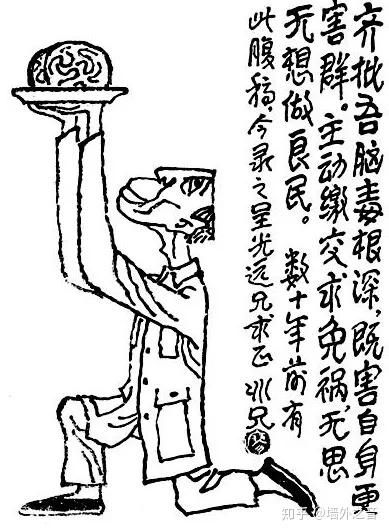 齐批吾脑毒根深，既害自身更
害群。主动缴交求免祸，无思
无想做良民。 数十年前有
此腹稿，今录之呈光远兄求正 冰兄
知乎 @墙外之音